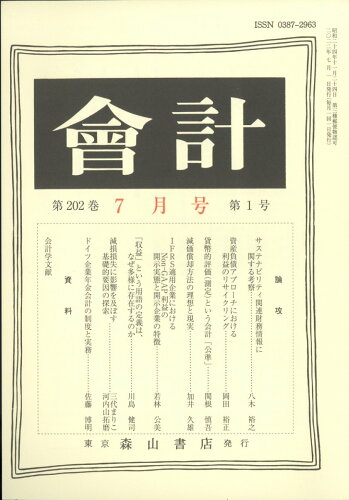 ISSN 0387-2963
會計
第202巻
7月号
第1号
論攻
サステナビリティ関連財務情報に
関する考察
八木 裕之
資産負債アプローチにおける
利益のリサイクリング
岡田 裕正
貨幣的評価(測定)という会計「公準」
関根 慎吾
減価償却方法の理想と現実
加井 久雄
IFRS適用企業における
Non-GAAP利益の
開示実態と開示企業の特徴
若林 公美
「収益」という用語の定義は、
なぜ多様に存在するのか
川島 健司
減損損失に影響を及ぼす
基礎的要因の探索
三代 まりこ
河内山 拓磨
資料
ドイツ企業年金会計の制度と実務
佐藤 博明
会計学文献
東京 森山書店 発行